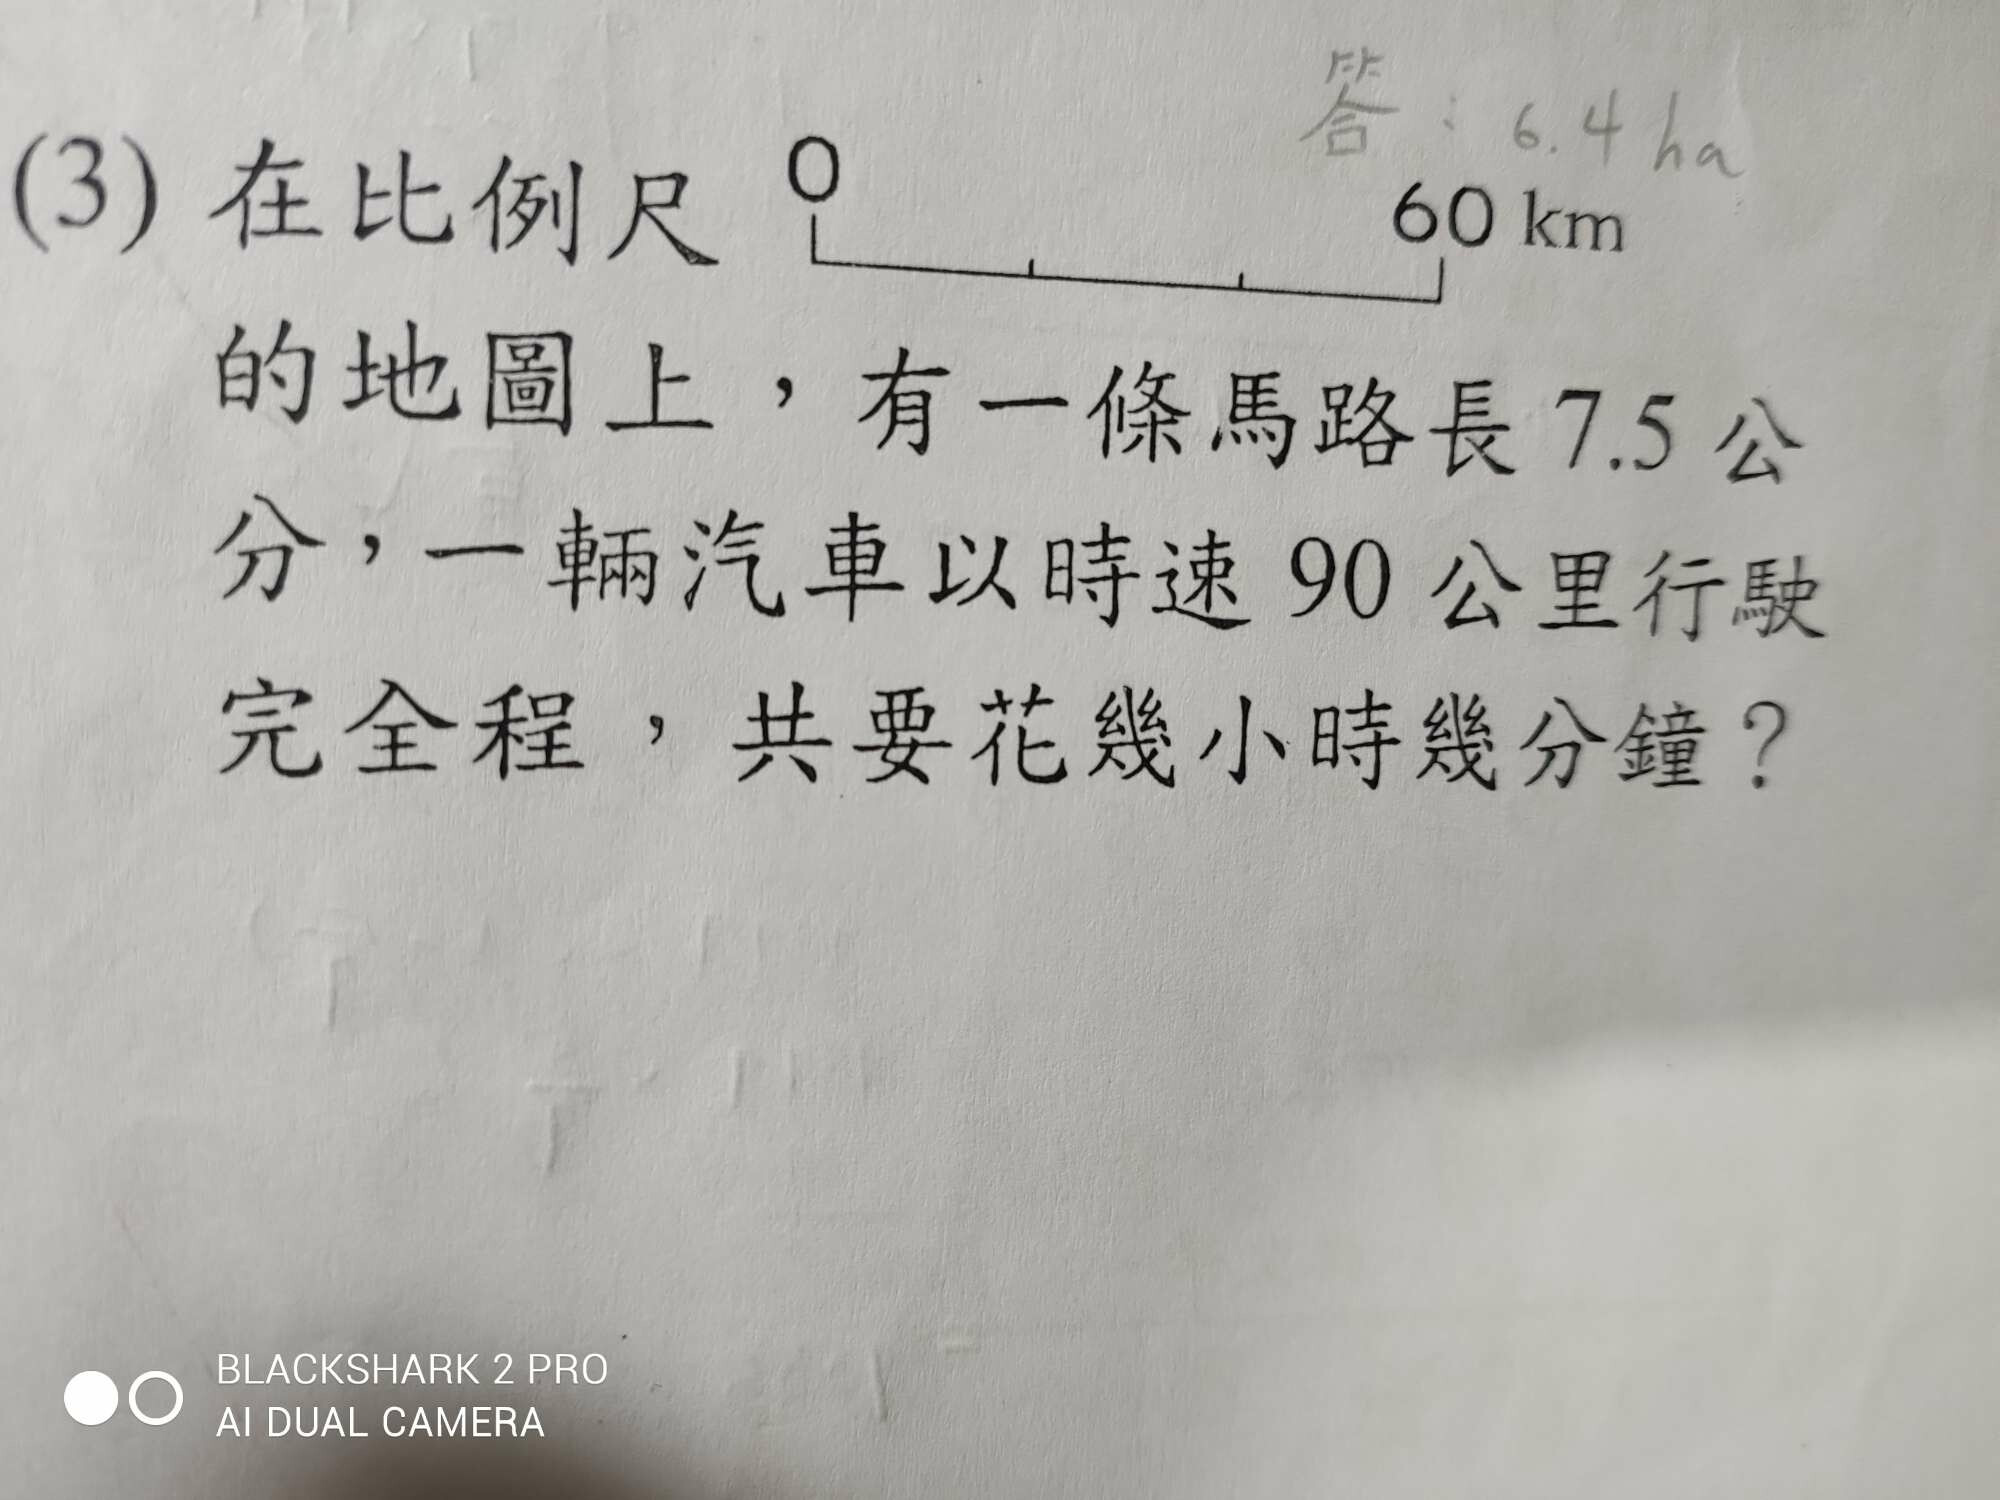 答：6.4 ha
(3) 在比例尺 0 60 km
的地圖上，有一條馬路長 7.5 公
分，一輛汽車以時速 90 公里行駛
完全程，共要花幾小時幾分鐘？
BLACKSHARK 2 PRO
AI DUAL CAMERA